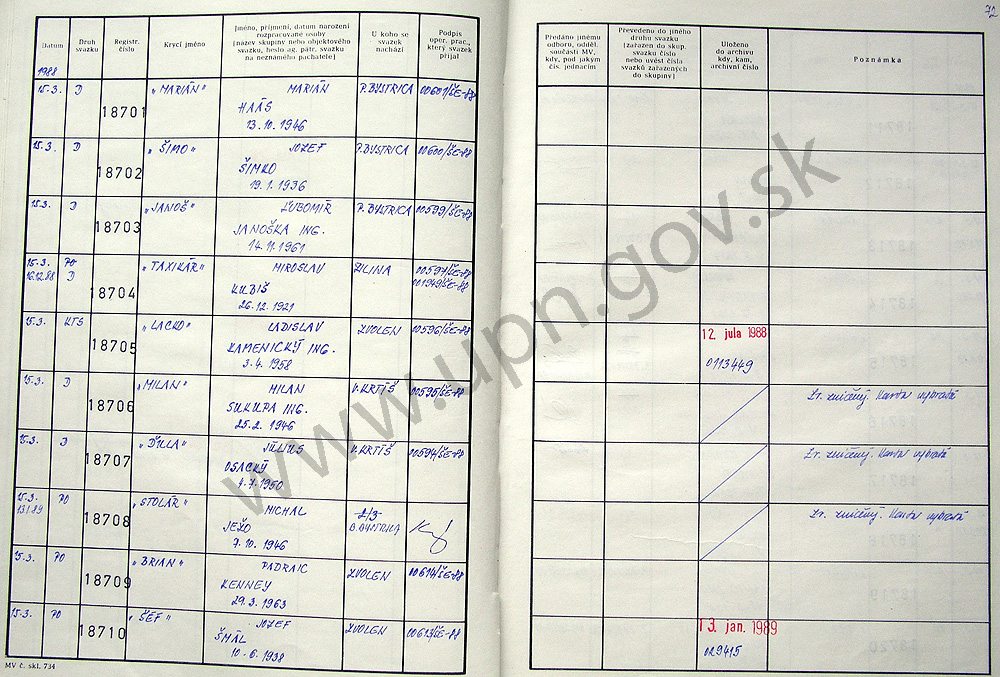 72
Datum
Druh svazku
Registr. číslo
Krycí jméno
Jméno, příjmení, datum narození
rozpracované osoby
(název skupiny nebo objektového
svazku, heslo ag. pátr. svazku
na neznámého pachatele)
U koho se
svazek
nachází
Podpis
oper. prac.,
který svazek
přijal
Předáno jinému
odboru, odděl.
součásti MV,
kdy, pod jakým
čís. jednacím
Převedeno do jiného
druhu svazku
(zařazen do skup.
svazku číslo
nebo uvést čísla
svazků zařazených
do skupiny)
Uloženo
do archivu
kdy, kam,
archivní číslo
Poznámka
1988
15.3. D 18701 "MARIÁN" MARIÁN P. BYSTRICA 00601/ŠE-88
HAÁS
13.10.1946
15.3. D 18702 "ŠIMO" JOZEF P. BYSTRICA 00600/ŠE-88
ŠIMKO
19.1.1936
15.3. D 18703 "JANOŠ" ĽUBOMÍR P. BYSTRICA 00599/ŠE-88
JANOŠKA ING.
14.11.1961
15.3. PO 18704 "TAXIKÁR" MIROSLAV ŽILINA 00597/ŠE-88
16.12.88 D 001949/ŠE-88
KUBIŠ
26.12.1921
15.3. KTS 18705 "LACKO" LADISLAV ZVOLEN 00596/ŠE-88 12. jula 1988
KAMENICKÝ ING. 0113449
3.4.1958
15.3. D 18706 "MILAN" MILAN V. KRTÍŠ 00595/ŠE-88 Zv. zničený. Karta vybratá
SUKUPA ING.
25.2.1946
15.3. D 18707 "ĎULA" JÚLIUS V. KRTÍŠ 00594/ŠE-88 Zv. zničený. Karta vybratá
OSACKÝ
4.7.1950
15.3. PO 18708 "STOLÁR" MICHAL 2/3- Zv. zničený. Karta vybratá
13.1.89 JEŽO B. BYSTRICA
7.10.1946
15.3. PO 18709 "BRIAN" PADRAIC ZVOLEN 00614/ŠE-88
KENNEY
29.3.1963
15.3. PO 18710 "ŠÉF" JOZEF ZVOLEN 00613/ŠE-88 13. jan. 1989
ŠMÁL 029415
10.6.1938
MV č. skl. 734
www.upn.gov.sk